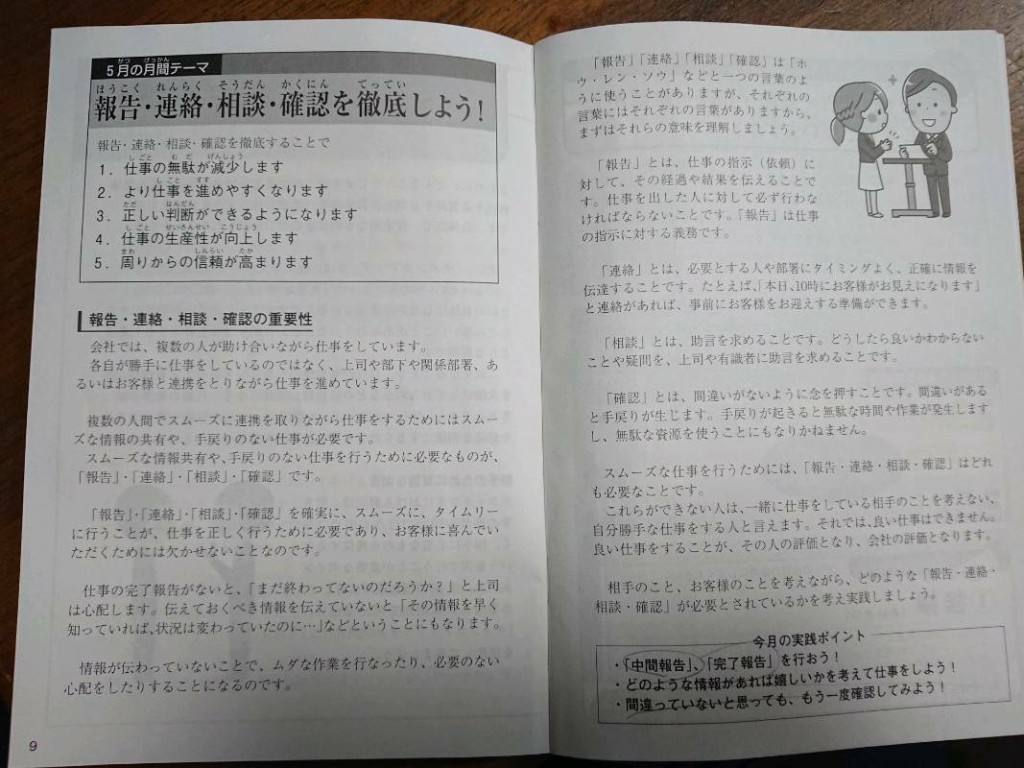 5月の月間テーマ
報告・連絡・相談・確認を徹底しよう！
報告・連絡・相談・確認を徹底することで
1．仕事の無駄が減少します
2．より仕事を進めやすくなります
3．正しい判断ができるようになります
4．仕事の生産性が向上します
5．周りからの信頼が高まります
報告・連絡・相談・確認の重要性
会社では、複数の人が助け合いながら仕事をしています。
各自が勝手に仕事をしているのではなく、上司や部下や関係部署、あ
るいはお客様と連携をとりながら仕事を進めています。
複数の人間でスムーズに連携を取りながら仕事をするためにはスムー
ズな情報の共有や、手戻りのない仕事が必要です。
スムーズな情報共有や、手戻りのない仕事を行うために必要なものが、
「報告」・「連絡」・「相談」・「確認」です。
「報告」・「連絡」・「相談」・「確認」を確実に、スムーズに、タイムリー
に行うことが、仕事を正しく行うために必要であり、お客様に喜んでい
ただくためには欠かせないことなのです。
仕事の完了報告がないと、「まだ終わってないのだろうか？」と上司
は心配します。伝えておくべき情報を伝えていないと「その情報を早く
知っていれば、状況は変わっていたのに…」などということにもなります。
情報が伝わっていないことで、ムダな作業を行なったり、必要のない
心配をしたりすることになるのです。
9
「報告」「連絡」「相談」「確認」は「ホ
ウ・レン・ソウ」などと一つの言葉のよ
うに使うことがありますが、それぞれの
言葉にはそれぞれの言葉がありますから、
まずはそれらの意味を理解しましょう。
「報告」とは、仕事の指示（依頼）に
対して、その経過や結果を伝えることで
す。仕事を出した人に対して必ず行わな
ければならないことです。「報告」は仕事
の指示に対する義務です。
「連絡」とは、必要とする人や部署にタイミングよく、正確に情報を
伝達することです。たとえば、「本日、10時にお客様がお見えになります」
と連絡があれば、事前にお客様をお迎えする準備ができます。
「相談」とは、助言を求めることです。どうしたら良いかわからない
ことや疑問を、上司や有識者に助言を求めることです。
「確認」とは、間違いがないように念を押すことです。間違いがある
と手戻りが生じます。手戻りが起きると無駄な時間や作業が発生します
し、無駄な資源を使うことにもなりかねません。
スムーズな仕事を行うためには、「報告・連絡・相談・確認」はどれ
も必要なことです。
これらができない人は、一緒に仕事をしている相手のことを考えない、
自分勝手な仕事をする人と言えます。それでは、良い仕事はできません。
良い仕事をすることが、その人の評価となり、会社の評価となります。
相手のこと、お客様のことを考えながら、どのような「報告・連絡・
相談・確認」が必要とされているかを考え実践しましょう。
今月の実践ポイント
・「中間報告」、「完了報告」を行おう！
・どのような情報があれば嬉しいかを考えて仕事をしよう！
・間違っていないと思っても、もう一度確認してみよう！